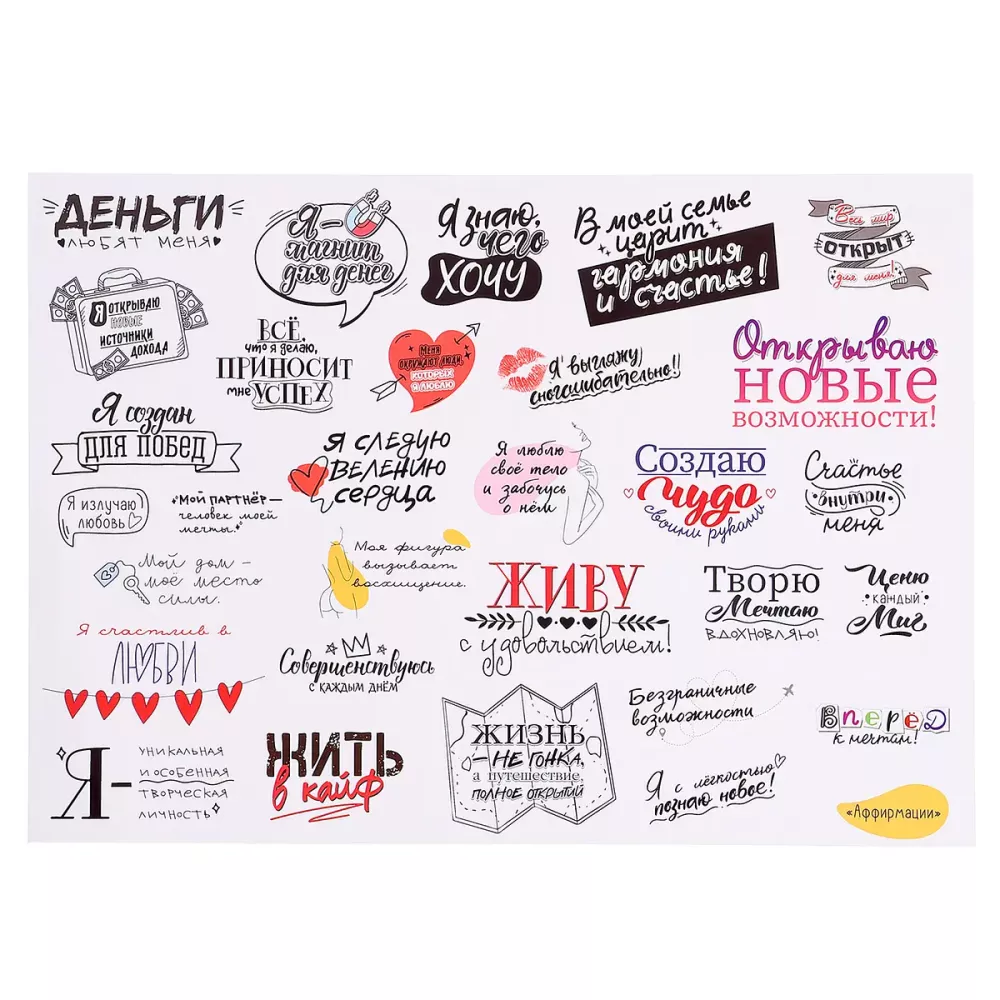 ДЕНЬГИ
ЛЮБЯТ МЕНЯ
Я -
магнит
для денег
Я знаю,
чего
ХОЧУ
В моей семье
царит
гармония
и счастье!
Весь мир
ОТКРЫТ
для меня!
Я ОТКРЫВАЮ
НОВЫЕ
ИСТОЧНИКИ
ДОХОДА
ВСЁ,
что я делаю,
ПРИНОСИТ
мне УСПЕХ
Меня
окружают люди,
которых
я люблю
Я выгляжу
сногсшибательно!!
Открываю
НОВЫЕ
ВОЗМОЖНОСТИ!
Я создан
ДЛЯ ПОБЕД
Я следую
велению
сердца
Я люблю
своё тело
и забочусь
о нём
Создаю
чудо
своими руками
Счастье
внутри
меня
Я излучаю
любовь
Мой партнёр —
человек моей
мечты.
Мой дом —
моё место
силы.
Моя фигура
вызывает
восхищение.
ЖИВУ
с удовольствием!
Творю
Мечтаю
ВДОХНОВЛЯЮ!
Ценю
каждый
Миг
Я счастлив в
ЛЮБВИ
Совершенствуюсь
С КАЖДЫМ ДНЁМ
Безграничные
возможности
Вперёд
к мечтам!
Я -
УНИКАЛЬНАЯ
И ОСОБЕННАЯ
ТВОРЧЕСКАЯ
ЛИЧНОСТЬ
ЖИТЬ
в кайф
ЖИЗНЬ
— НЕ ГОНКА,
а путешествие,
ПОЛНОЕ ОТКРЫТИЙ
Я с лёгкостью
познаю новое!
«Аффирмации»